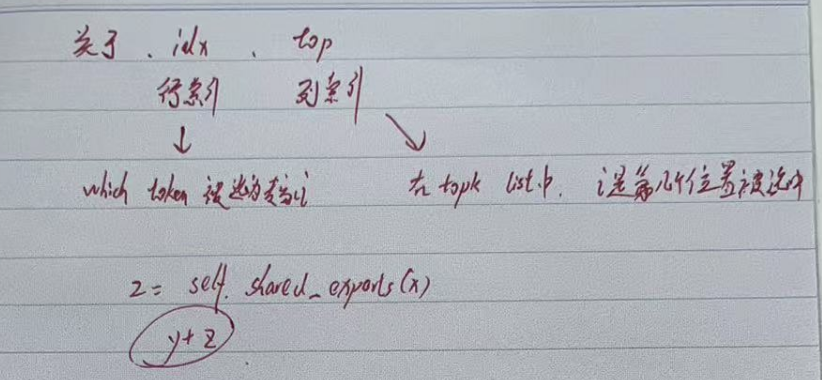 关于 . idx . top
行索引 列索引
↓ ↘
which token 被选为专家i
在 topk list 中. i是第几个位置被选中
z = self. shared_experts(x)
y+z